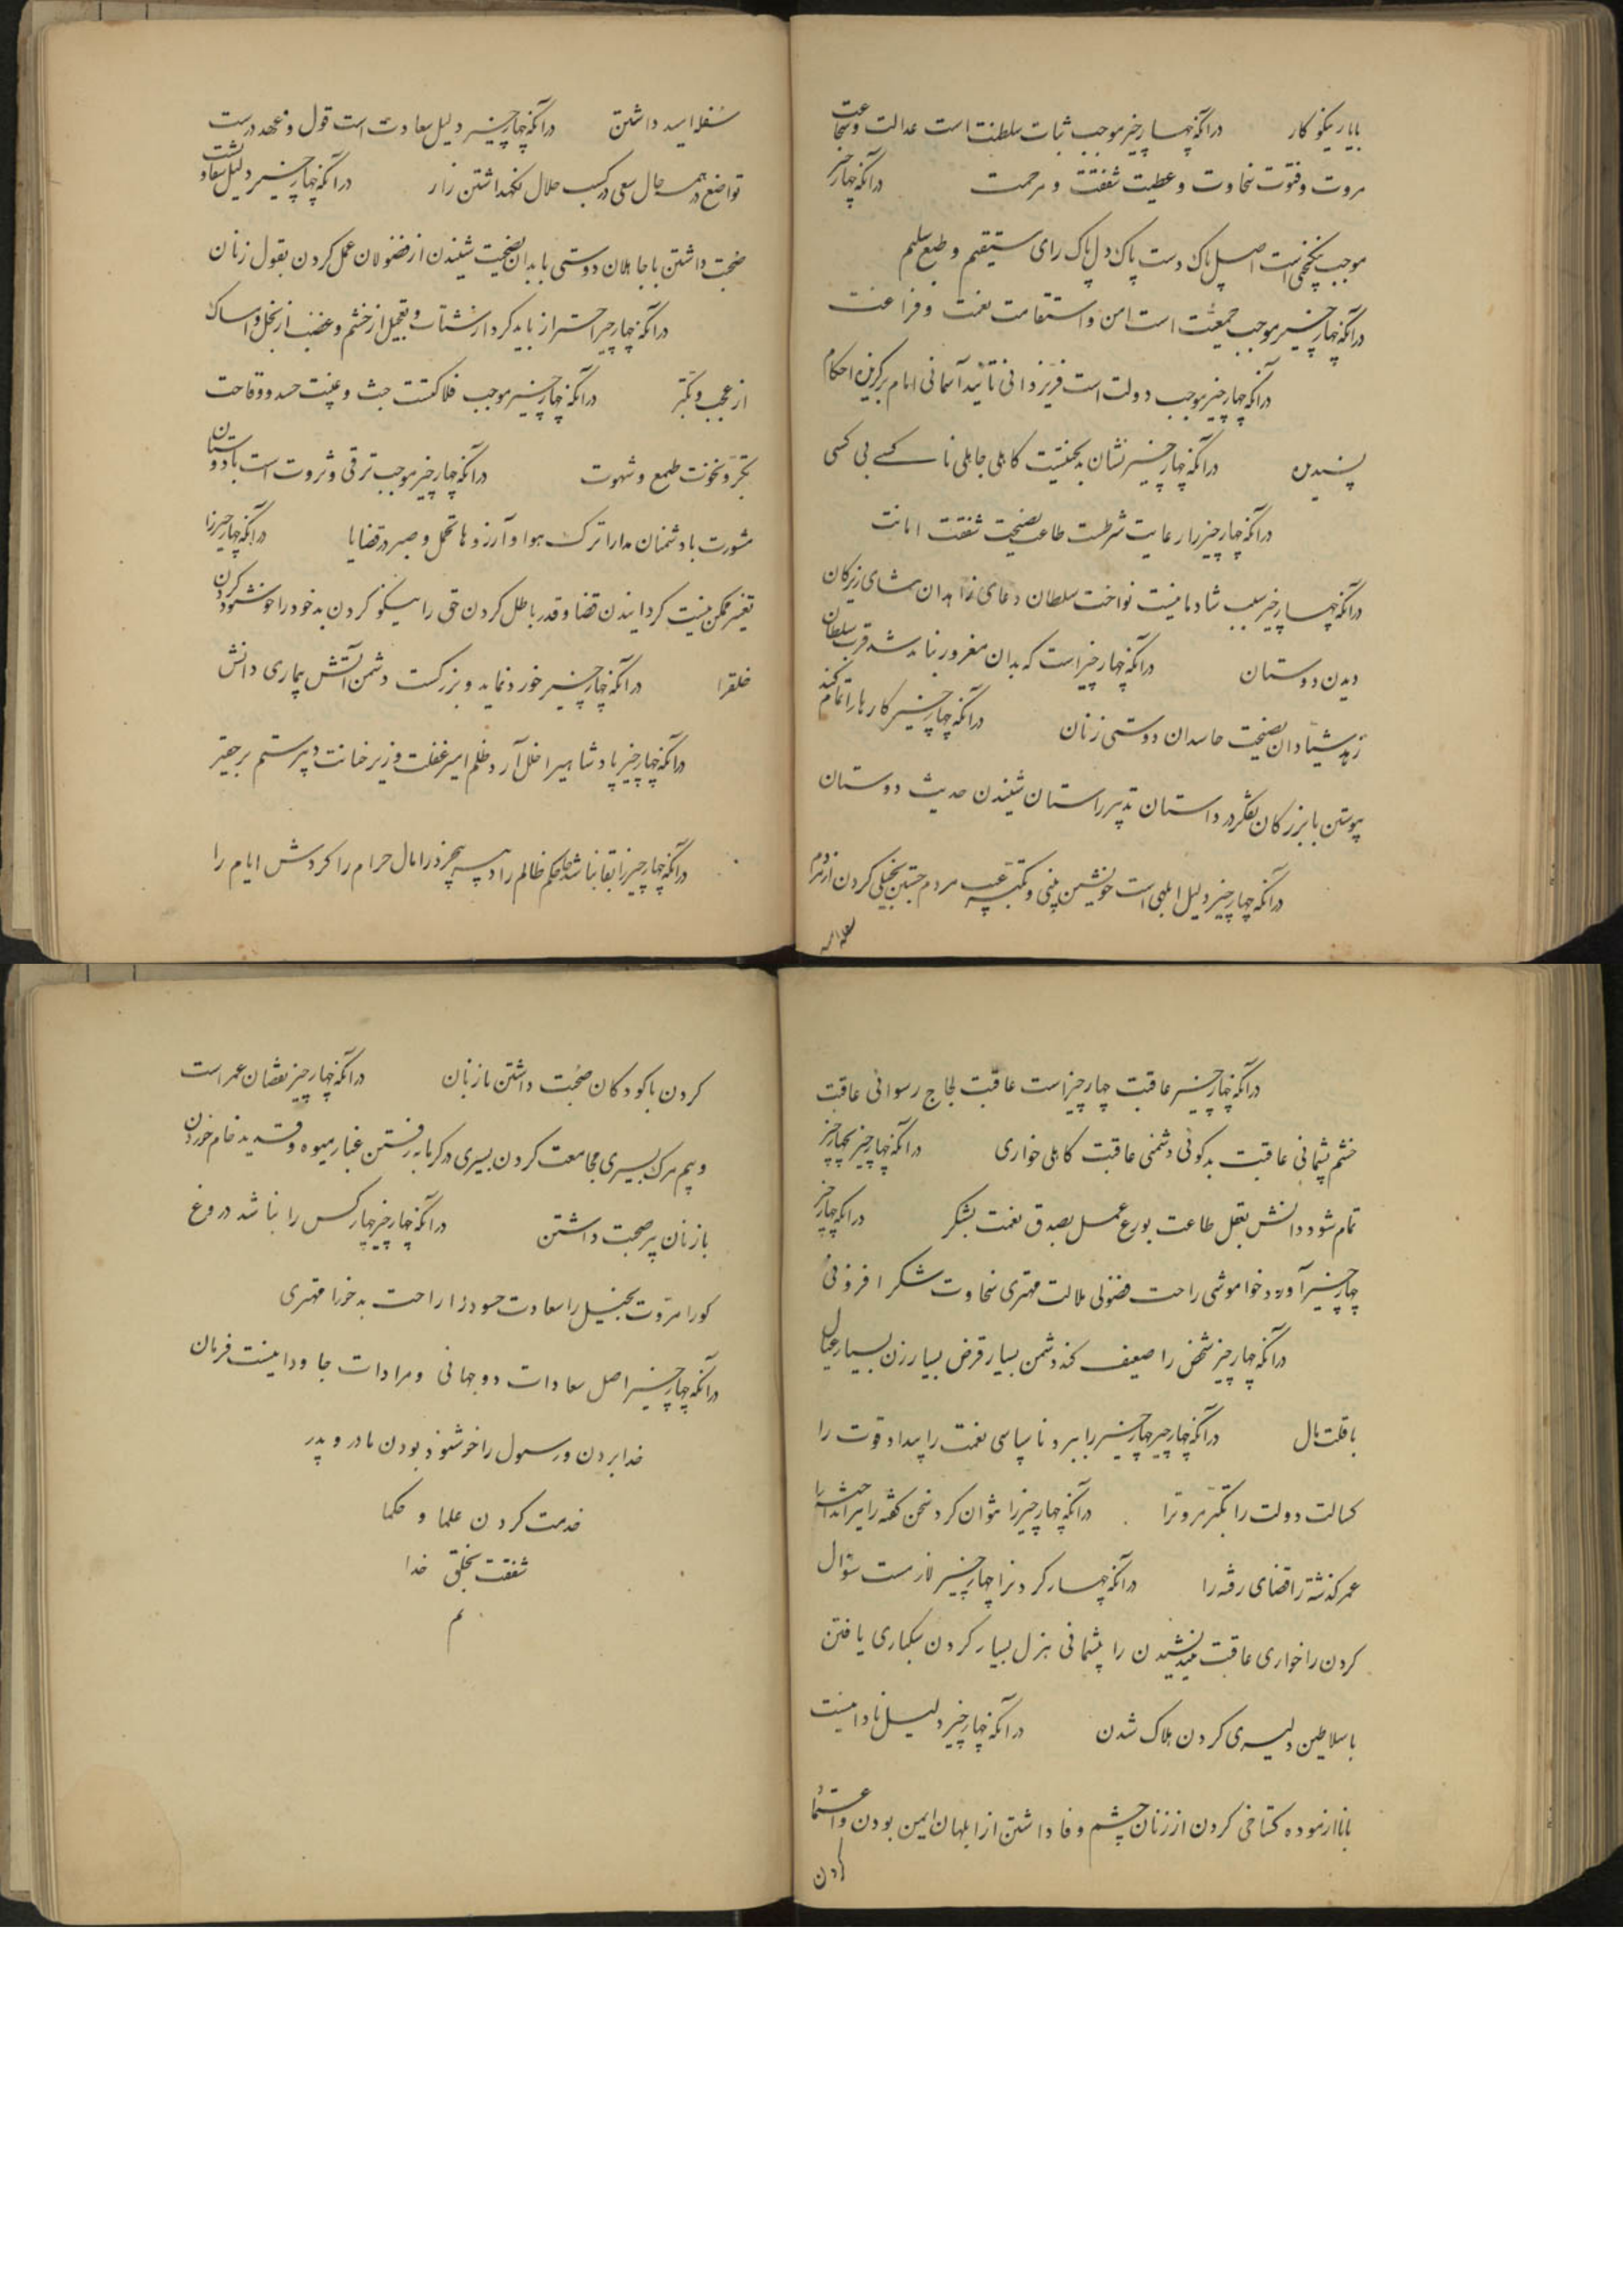 بایار نیکو کار درآنکه چهار چیز موجب ثبات سلطنت است عدالت وشجاعت
مروت وفتوت سخاوت وعطیت شفقت ومرحمت درآنکه چهار چیز
موجب نیکبختی است اصل پاک دست پاک دل پاک رای مستقیم وطبع سلیم
درآنکه چهار چیز موجب جمعیت است امن واستقامت نعمت وفراغت
درآنکه چهار چیز موجب دولت است فر یزدانی تائید آسمانی ایام برگزیدن احکام
پسندیدن درآنکه چهار چیز نشان بدبختیست کاهلی جاهلی ناکسی بی کسی
درآنکه چهار چیز را رعایت شرطست طاعت نصیحت شفقت امانت
درآنکه چهار چیز سبب شادمانیست نواخت سلطان دعای زاهدان ثنای زیرکان
دیدن دوستان درآنکه چهار چیز است که بدان مغرور نباید شد قرب سلطان
زهد شیادان نصیحت حاسدان دوستی زنان درآنکه چهار چیز کارها را تمام کند
پیوستن با بزرگان تفکر در داستان تدبیر راستان شنیدن حدیث دوستان
درآنکه چهار چیز دلیل ابلهی است خویشتن بینی وتکبر عیب مردم جستن بخیلی کردن از مردم
سفله امید
سفله امید داشتن درآنکه چهار چیز دلیل سعادت است قول وعهد درست
تواضع در همه حال سعی در کسب حلال نگهداشتن زار درآنکه چهار چیز دلیل شقاوتست
صحبت داشتن با جاهلان دوستی با بدان نصیحت شنیدن از فضولان عمل کردن بقول زنان
درآنکه چهار چیر احتراز باید کرد از شتاب وتعجیل از خشم وغضب از بخل وامساک
از عجب وتکبر درآنکه چهار چیز موجب فلاکتست خبث وغیبت حسد ووقاحت
تجبر ونخوت طمع وشهوت درآنکه چهار چیز موجب ترقی وثروت است با دوستان
مشورت با دشمنان مدارا ترک هوا وآرزوها تحمل وصبر در قضایا درآنکه چهار چیز را
تغییر ممکن نیست گردانیدن قضا وقدر باطل کردن حق را نیکو کردن بد خود را خوشنود کردن
خلقرا درآنکه چهار چیز خورد نماید وبزرگست دشمن آتش بیماری دانش
درآنکه چهار چیز پادشاهیرا خلل آرد ظلم امیر غفلت وزیر خیانت دبیر ستم بر حقیر
درآنکه چهار چیز را بقا نباشد حاکم ظالم را مال حرام را گردش ایام را
درآنکه چهار چیز عاقبت چهار چیز است عاقبت لجاج رسوائی عاقبت
خشم پشیمانی عاقبت بدگوئی دشمنی عاقبت کاهلی خواری درآنکه چهار چیز بچهار چیز
تمام شود دانش بعقل طاعت بورع عمل بصدق نعمت بشکر درآنکه چهار چیز
چهار چیز آورد خواموشی راحت فضولی ملالت مهتری سخاوت شکر افزونی
درآنکه چهار چیز شخص را ضعیف کند دشمن بسیار قرض بسیار زن بسیار عیال
با قلت مال درآنکه چهار چیر چهار چیز را ببرد ناسپاسی نعمت را بیداد قوت را
کسالت دولت را تکبر مروترا درآنکه چهار چیز را نتوان کرد سخن گفته را تیر انداخته را
عمر گذشته را قضای رفته را درآنکه چهار کردنرا چهار چیز لازمست سؤال
کردن را خواری عاقبت نیندیشیدن را پشیمانی هزل بسیار کردن سبکباری یافتن
با سلاطین دلیری کردن هلاک شدن درآنکه چهار چیز دلیل نادانیست
با ناآزموده گستاخی کردن از زنان چشم وفا داشتن از ابلهان ایمن بودن واعتماد
کردن
کردن با کودکان صحبت داشتن با زنان درآنکه چهار چیز نقصان عمر است
وبیم مرگ بسیری مجامعت کردن بسیری در گرمابه رفتن غبار میوه وقدید خام خوردن
با زنان پیر صحبت داشتن درآنکه چهار چیز چهار کس را نباشد دروغ
گورا مروت بخیل را سعادت حسود را راحت بدخورا مهتری
درآنکه چهار چیز اصل سعادات دو جهانی ومرادات جاودانیست فرمان
خدا بردن ورسول را خوشنود بودن مادر وپدر
خدمت کردن علما وحکما
شفقت بخلق خدا
تم